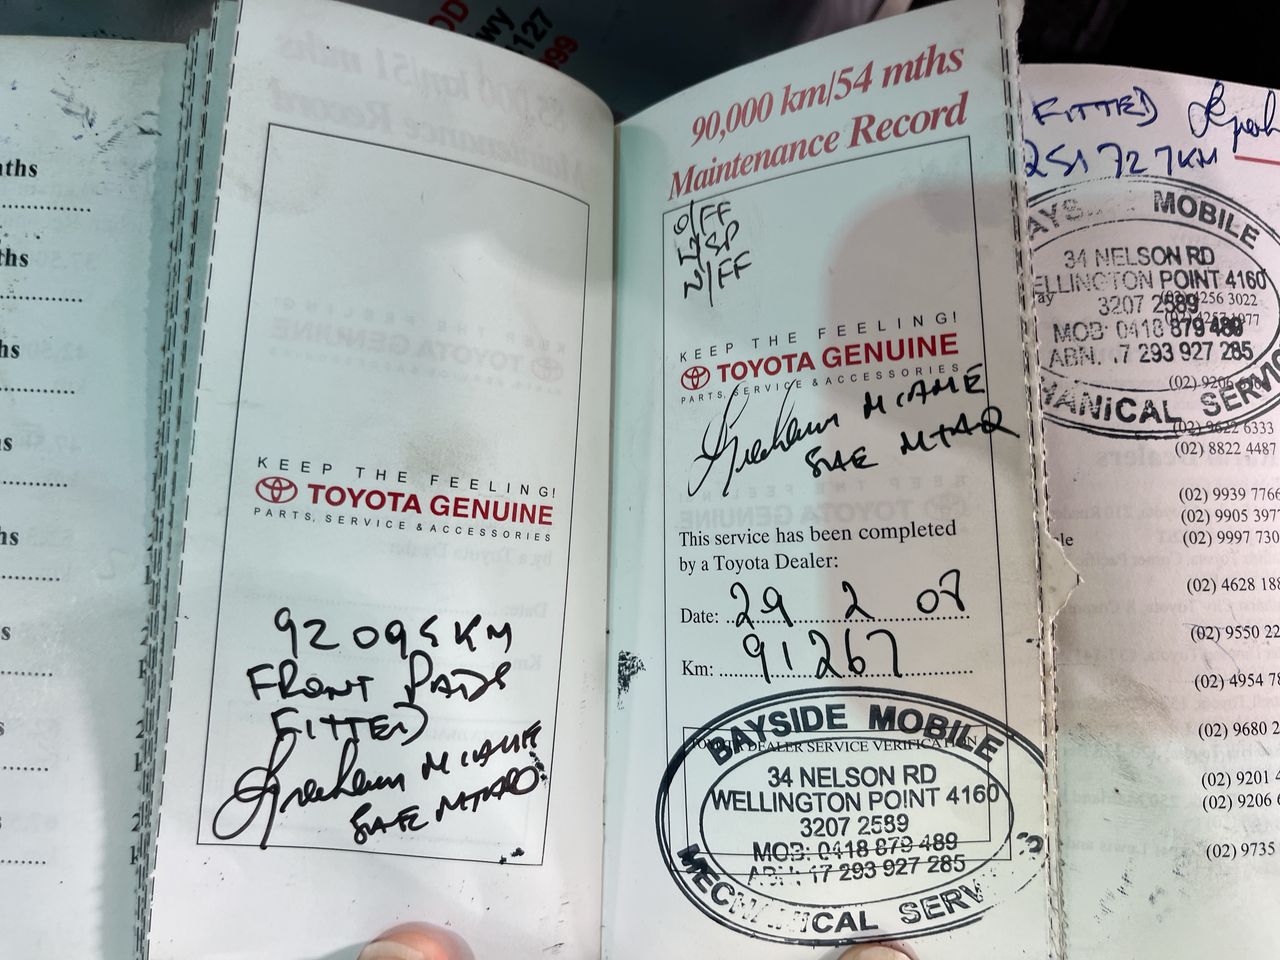 KEEP THE FEELING!
TOYOTA GENUINE
PARTS, SERVICE & ACCESSORIES
92095KM
FRONT PADS
FITTED
Graham MCAME
SAE MTAQ
90,000 km/54 mths
Maintenance Record
O/FF
SP
/FF
KEEP THE FEELING!
TOYOTA GENUINE
PARTS, SERVICE & ACCESSORIES
Graham MCAME
SAE MTAQ
This service has been completed
by a Toyota Dealer:
Date: 29 2 08
Km: 91267
DEALER SERVICE VERIFICATION
BAYSIDE MOBILE
34 NELSON RD
WELLINGTON POINT 4160
3207 2589
MOB: 0418 879 489
ABN: 17 293 927 285
MECHANICAL SERV
FITTED
251727KM
MOBILE
34 NELSON RD
ELLINGTON POINT 4160
3207 2589
MOB: 0418 879 489
ABN: 17 293 927 285
HANICAL SERVIC
(02) 4256 3022
(02) 9622 6333
(02) 8822 4487
(02) 9939 7766
(02) 9905 397
(02) 9997 730
(02) 4628 188
(02) 9550 22
(02) 4954 78
(02) 9680 2
(02) 9201 4
(02) 9206 6
(02) 9735